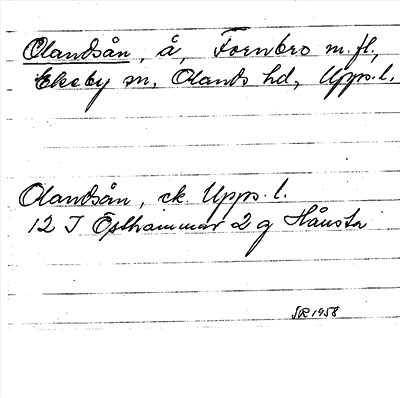 Olandsån, å, Fornbro m.fl.,
Ekeby sn, Olands hd, Upps. l.
Olandsån, ek. Upps. l.
12 I Östhammar 2 g Hånsta
SR 1958